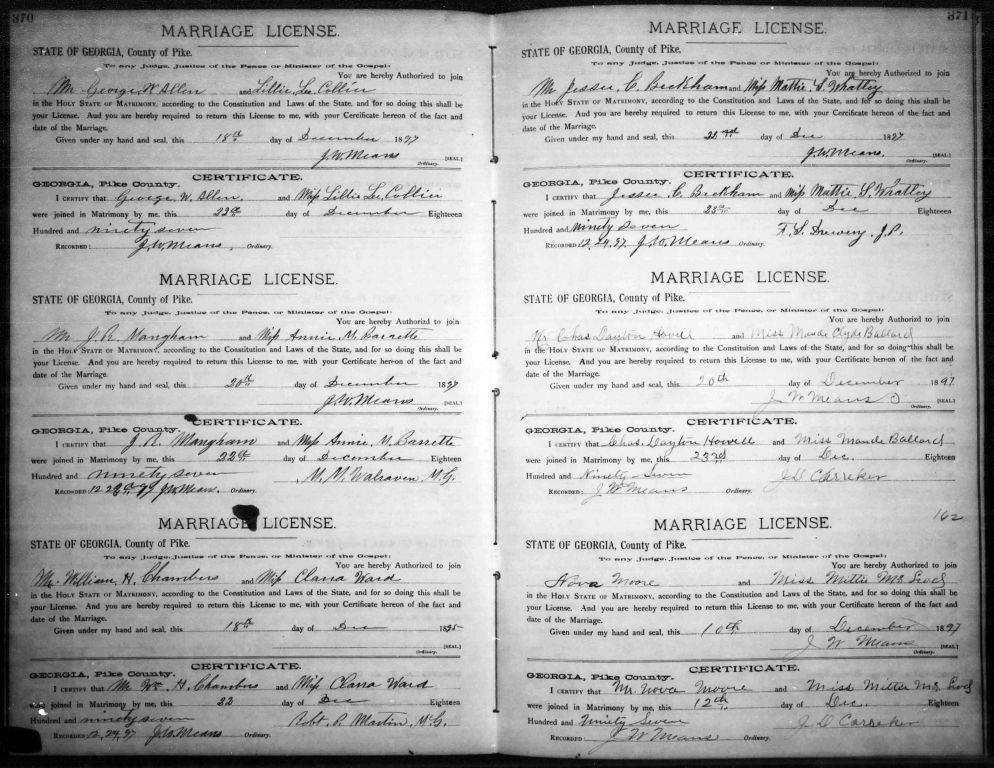 370
MARRIAGE LICENSE.
STATE OF GEORGIA, County of Pike.
To any Judge, Justice of the Peace or Minister of the Gospel:
You are hereby Authorized to join
Mr George W Allen and Lillie Lee Collier
in the HOLY STATE OF MATRIMONY, according to the Constitution and Laws of the State, and for so doing this shall be
your License. And you are hereby required to return this License to me, with your Certificate hereon of the fact and
date of the Marriage.
Given under my hand and seal, this 18th day of December 1897
J.W. Means [SEAL]
Ordinary.
CERTIFICATE.
GEORGIA, Pike County.
I CERTIFY that George W. Allen and Miss Lillie Lee Collier
were joined in Matrimony by me, this 23rd day of December Eighteen
Hundred and ninety seven
RECORDED: J.W. Means, Ordinary.
MARRIAGE LICENSE.
STATE OF GEORGIA, County of Pike.
To any Judge, Justice of the Peace or Minister of the Gospel:
You are hereby Authorized to join
Mr J. R. Mangham and Miss Annie M. Barrette
in the HOLY STATE OF MATRIMONY, according to the Constitution and Laws of the State, and for so doing this shall be
your License. And you are hereby required to return this License to me, with your Certificate hereon of the fact and
date of the Marriage.
Given under my hand and seal, this 20th day of December 1897
J.W. Means [SEAL]
Ordinary.
CERTIFICATE.
GEORGIA, Pike County.
I CERTIFY that J. R. Mangham and Miss Annie M. Barrette
were joined in Matrimony by me, this 22nd day of December Eighteen
Hundred and ninety seven M. M. Walraven, M.G.
RECORDED: J.W. Means. Ordinary.
MARRIAGE LICENSE.
STATE OF GEORGIA, County of Pike.
To any Judge, Justice of the Peace, or Minister of the Gospel:
You are hereby Authorized to join
Mr. William H. Chambers and Miss Clara Ward
in the HOLY STATE OF MATRIMONY, according to the Constitution and Laws of the State, and for so doing this shall be
your License. And you are hereby required to return this License to me, with your Certificate hereon of the fact and
date of the Marriage.
Given under my hand and seal, this 18th day of Dec 1895
[SEAL]
Ordinary.
CERTIFICATE.
GEORGIA, Pike County.
I CERTIFY that Mr Wm. H. Chambers and Miss Clara Ward
were joined in Matrimony by me, this 22 day of Dec Eighteen
Hundred and ninety seven Robt. P. Martin, M.G.
RECORDED: 12,24,97 J.W. Means Ordinary.
371
MARRIAGE LICENSE.
STATE OF GEORGIA, County of Pike.
To any Judge, Justice of the Peace or Minister of the Gospel:
You are hereby Authorized to join
Mr Jessee C. Beckham and Miss Mattie S. Whatley
in the HOLY STATE OF MATRIMONY, according to the Constitution and Laws of the State, and for so doing this shall be
your License. And you are hereby required to return this License to me, with your Certificate hereon of the fact and
date of the Marriage.
Given under my hand and seal, this day of Dec 1897
J.W. Means, [SEAL]
Ordinary.
CERTIFICATE.
GEORGIA, Pike County.
I CERTIFY that Jessee C. Beckham and Miss Mattie S. Whatley
were joined in Matrimony by me, this 23rd day of Dec Eighteen
Hundred and Ninety seven F. S. Drewery, J.P.
RECORDED 12,24,97. J.W. Means Ordinary.
MARRIAGE LICENSE.
STATE OF GEORGIA, County of Pike.
To any Judge, Justice of the Peace, or Minister of the Gospel:
You are hereby Authorized to join
Chas. Dayton Howell and Miss Maude Clyde Ballard
in the HOLY STATE OF MATRIMONY, according to the Constitution and Laws of the State, and for so doing this shall be
your License. And you are hereby required to return this License to me, with your Certificate hereon of the fact and
date of the Marriage.
Given under my hand and seal, this 20th day of December 1897
J W Means O [SEAL]
Ordinary.
CERTIFICATE.
GEORGIA, Pike County.
I CERTIFY that Chas. Dayton Howell and Miss Maude Ballard
were joined in Matrimony by me, this 23rd day of Dec. Eighteen
Hundred and Ninety Seven J D Carreker
RECORDED: J W Means Ordinary.
162
MARRIAGE LICENSE.
STATE OF GEORGIA, County of Pike.
To any Judge, Justice of the Peace, or Minister of the Gospel:
You are hereby Authorized to join
Nova Moore and Miss Mittie
in the HOLY STATE OF MATRIMONY, according to the Constitution and Laws of the State, and for so doing this shall be
your License. And you are hereby required to return this License to me, with your Certificate hereon of the fact and
date of the Marriage.
Given under my hand and seal, this 10th day of December 1897
J W Means [SEAL]
Ordinary.
CERTIFICATE.
GEORGIA, Pike County.
I CERTIFY that Mr. Nova Moore and Miss Mittie
were joined in Matrimony by me, this 12th day of Dec. Eighteen
Hundred and Ninety Seven J D Carreker
RECORDED: J W Means Ordinary.